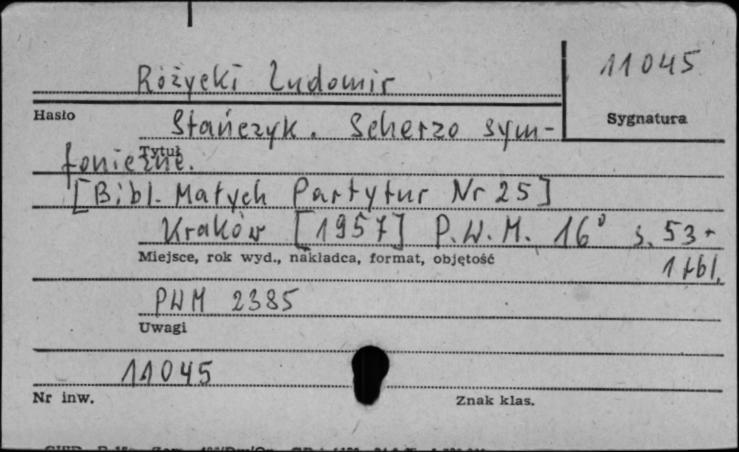 Różycki Ludomir
11045
Hasło
Sygnatura
Stańczyk. Scherzo sym-
Tytuł
foniczne.
[Bibl. Małych Partytur Nr 25]
Kraków [1957] P.W.M. 16° s. 53 +
Miejsce, rok wyd., nakładca, format, objętość
1 tbl.
PWM 2385
Uwagi
11045
Nr inw.
Znak klas.